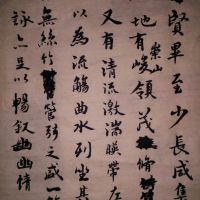 賢畢至少長咸集
地有崇山峻領茂林脩
又有清流激湍暎帶左
以為流觴曲水列坐其
無絲竹管弦之盛一
詠亦足以暢叙幽情